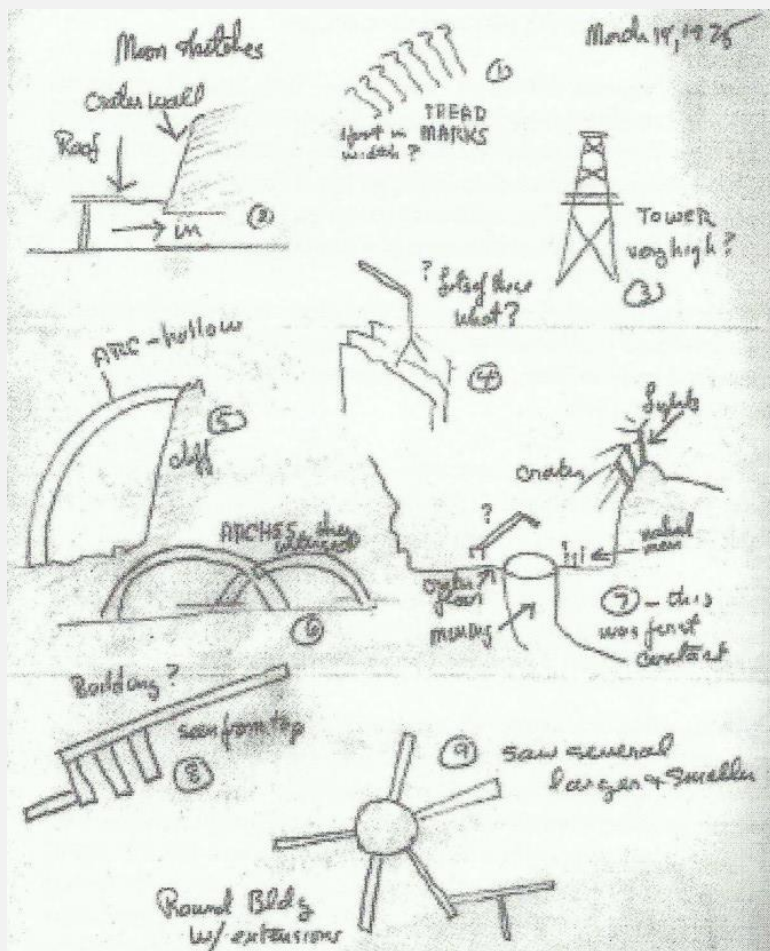 Moon sketches
March 14, 1975
Crater wall
Roof
in
2
1
TREAD
MARKS
1 foot in
width?
TOWER
very high?
3
? Lots of these
what?
4
ARC-hollow
5
cliff
ARCHES they
intersect
6
Lights
crater
?
naked
men
crater
floor
mining
7 - this
was first
contact
Building?
seen from top
8
9 saw several
larger & smaller
Round Bldg
w/ extensions